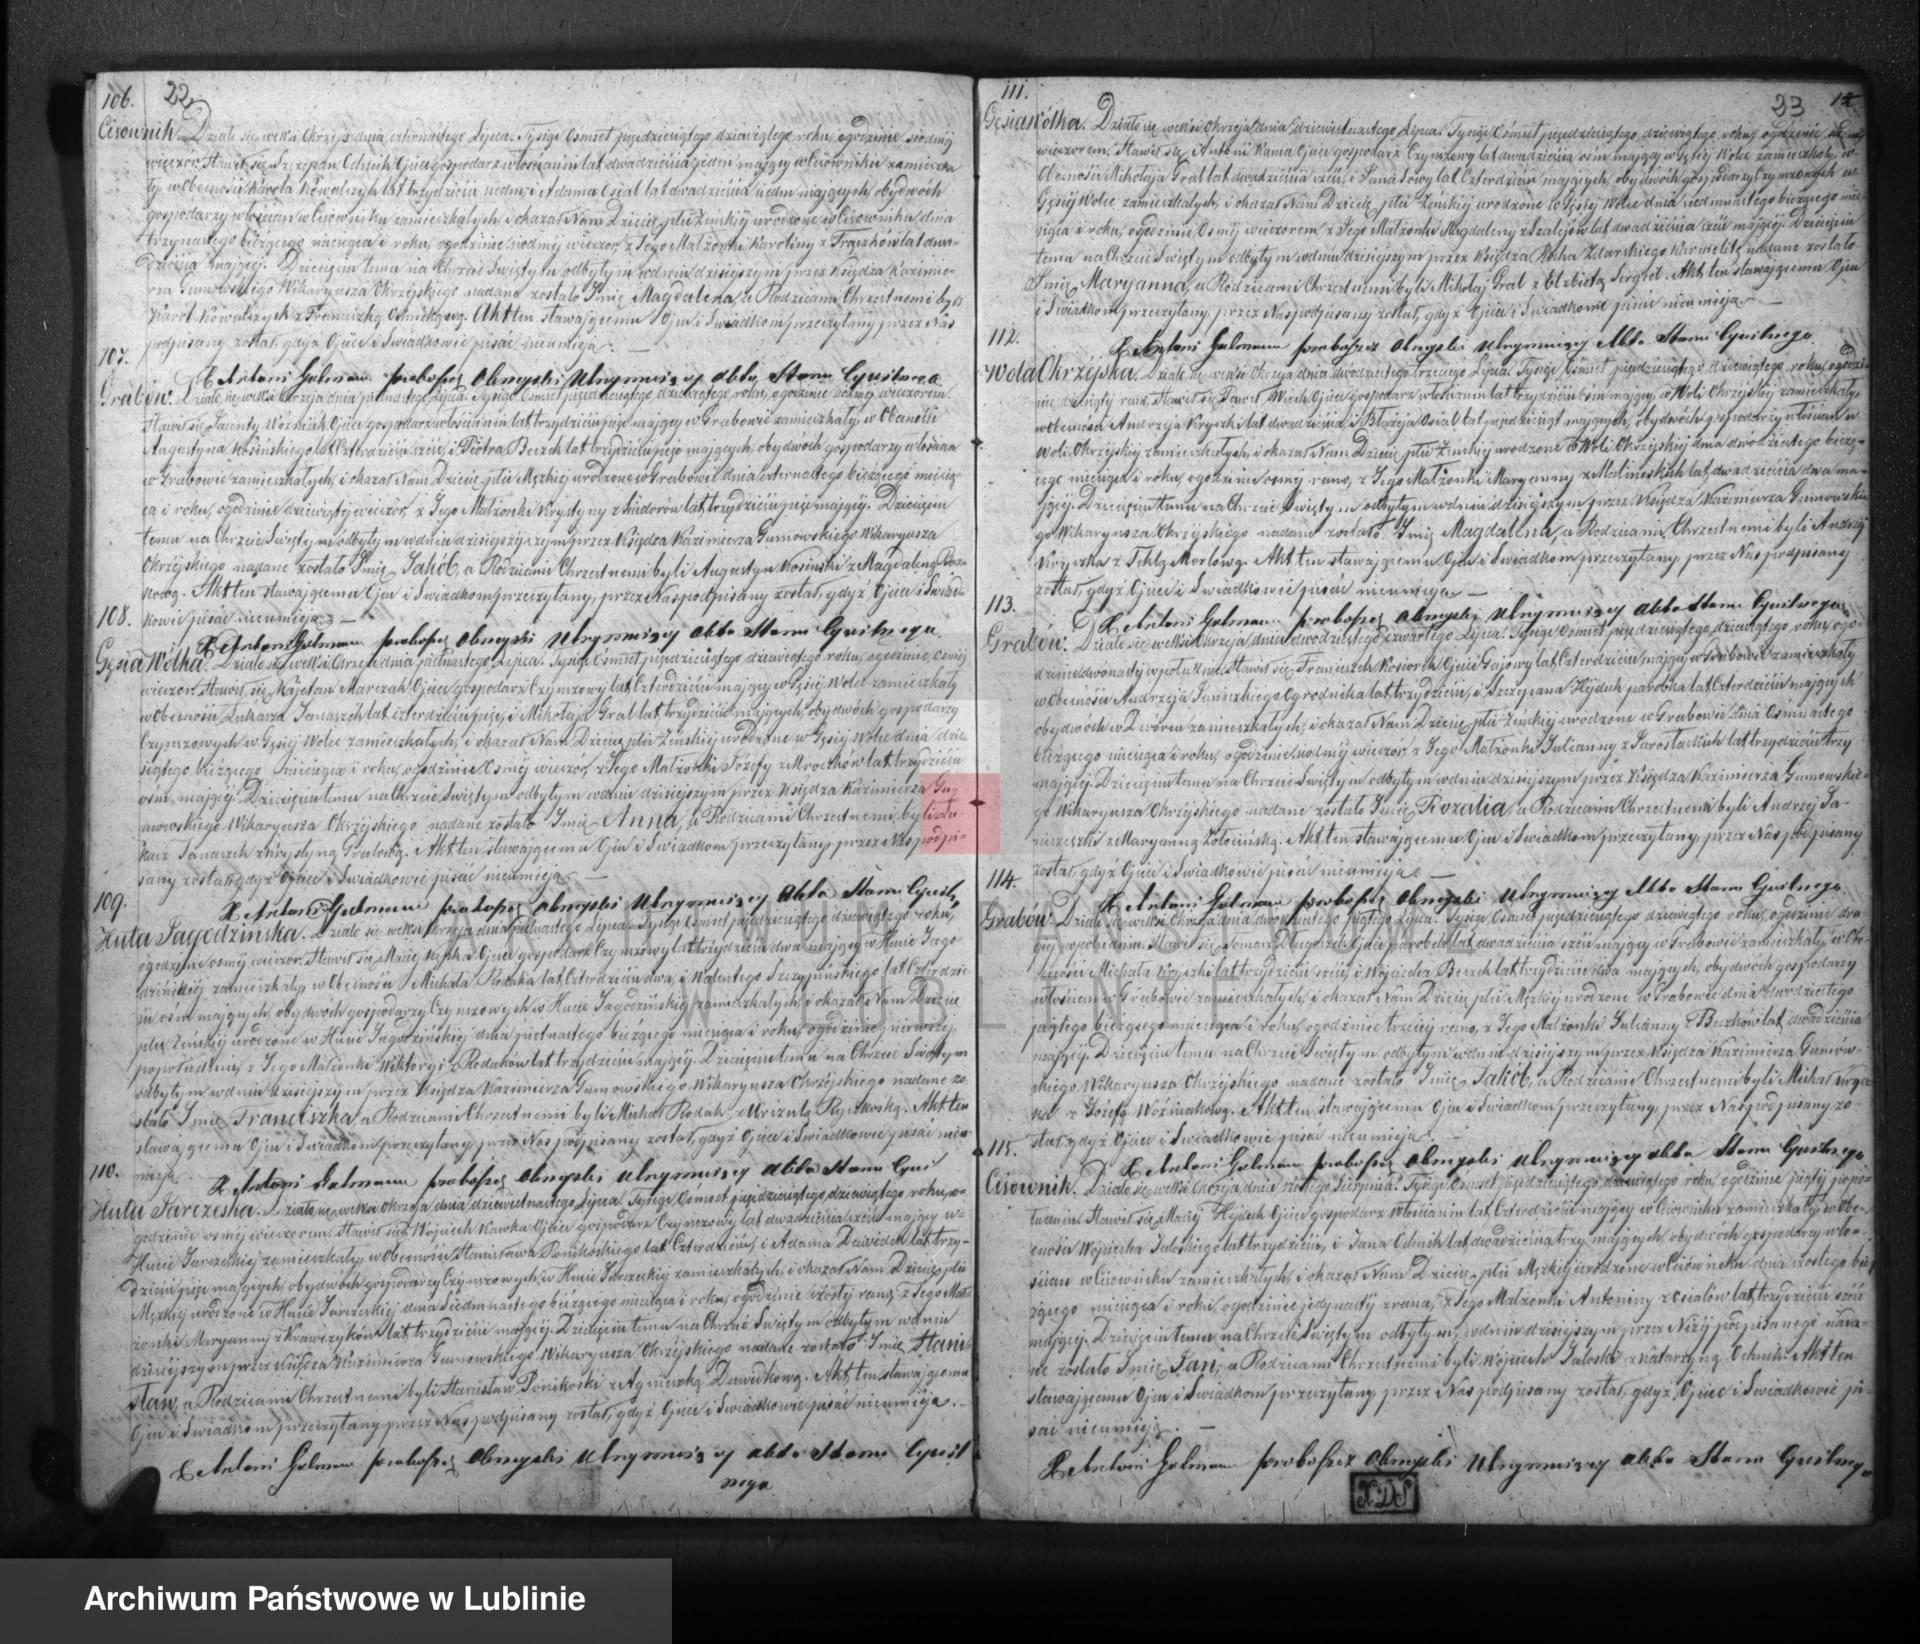 106. 22
Cisownik. Działo się we wsi Okrzeja dnia czternastego Lipca. Tysiąc Ośmset pięćdziesiątego dziewiątego roku, ogodzinie siódmej
wieczor. Stawił się Szczepan Ochnik Ojciec gospodarz włościanin lat dwadzieścia jeden mający w Cisowniku zamieszka
ły, w Obecności Karola Kowalczyk lat trzydzieści siedm, i Adama Osial lat dwadzieścia siedm mających, obydwóch
gospodarzy włościan w Cisowniku zamieszkałych, i okazał Nam Dziecię płci Żeńskiej urodzone w Cisowniku dnia
trzynastego bieżącego miesiąca i roku, ogodzinie siódmej wieczor, z Jego Małżonki Karoliny z lat dwa-
dzieścia mającej. Dziecięciu temu na Chrzcie Świętym odbytym w dniu dzisiejszym przez Księdza Kazimie-
rza Gumowskiego Wikaryusza Okrzejskiego nadane zostało Imię Magdalena, a Rodzicami Chrzestnemi byli
Karol Kowalczyk z Franciszką. Akt ten stawającemu Ojcu i Świadkom przeczytany, przez Nas
podpisany został, gdyż Ojciec i Świadkowie pisać nieumieją.
X Antoni Galman proboszcz Okrzejski Utrzymujący Akta Stanu Cywilnego
107.
Grabów. Działo się we wsi Okrzeja dnia piętnastego Lipca. Tysiąc Ośmset pięćdziesiątego dziewiątego roku, ogodzinie ósmej wieczorem.
Stawił się Walenty Woźniak Ojciec gospodarz włościanin lat trzydzieści pięć mający w Grabowie zamieszkały, w Obecności
Augustyna Kosińskiego lat Czterdzieści sześć, i Piotra Beczek lat trzydzieści pięć mających, obydwóch gospodarzy włościan
w Grabowie zamieszkałych, i okazał Nam Dziecię płci Męzkiej urodzone w Grabowie dnia czternastego bieżącego miesią-
ca i roku, ogodzinie dziewiątej wieczor, z Jego Małżonki Krystyny z Sidorów lat trzydzieści pięć mającej. Dziecięciu
temu na Chrzcie Świętym odbytym w dniu dzisiejszym przez Księdza Kazimierza Gumowskiego Wikaryusza
Okrzejskiego nadane zostało Imię Jakób, a Rodzicami Chrzestnemi byli Augustyn Kosiński z Magdaleną
Akt ten stawającemu Ojcu i Świadkom przeczytany, przez Nas podpisany został, gdyż Ojciec i Świad-
kowie pisać nieumieją.
X Antoni Galman proboszcz Okrzejski Utrzymujący Akta Stanu Cywilnego.
108.
Gęsia Wólka. Działo się we wsi Okrzeja dnia Lipca. Tysiąc Ośmset pięćdziesiątego dziewiątego roku, ogodzinie ósmej
wieczor. Stawił się Kajetan Marczak Ojciec gospodarz Czynszowy lat Czterdzieści mający w Gęsiej Wólce zamieszkały
w Obecności Łukasza Janaszek lat czterdzieści pięć, i Mikołaja Gral lat trzydzieści mających, obydwóch gospodarzy
Czynszowych w Gęsiej Wólce zamieszkałych, i okazał Nam Dziecię płci Żeńskiej urodzone w Gęsiej Wólce dnia dzie
siątego bieżącego miesiąca i roku, ogodzinie Ósmej wieczor, z Jego Małżonki Józefy z Mroczków lat trzydzieści
ośm, mającej. Dziecięciu temu na Chrzcie Świętym odbytym w dniu dzisiejszym przez Księdza Kazimierza Gu-
mowskiego Wikaryusza Okrzejskiego nadane zostało Imię Anna, a Rodzicami Chrzestnemi byli Łu-
kasz Janaszek z Krystyną Gralową. Akt ten stawającemu Ojcu i Świadkom przeczytany przez Nas podpi-
sany został, gdyż Ojciec i Świadkowie pisać nieumieją.
X Antoni Galman proboszcz Okrzejski Utrzymujący Akta Stanu Cywiln,
109.
Huta Jagodzińska. Działo się we wsi Okrzeja dnia Lipca. Tysiąc Ośmset pięćdziesiątego dziewiątego roku,
ogodzinie ósmej wieczor. Stawił się Maciej Ojciec gospodarz Czynszowy lat trzydzieści dwa mający w Hucie Jago-
dzińskiej zamieszkały, w Obecności Michała Rodaka lat Czterdzieści dwa, i Walentego Szczypińskiego lat Czterdzie
ści ośm mających, obydwóch gospodarzy Czynszowych, w Hucie Jagodzińskiej zamieszkałych, i okazał Nam Dziecię
płci Żeńskiej urodzone w Hucie Jagodzińskiej dnia piętnastego bieżącego miesiąca i roku, ogodzinie pierwszej
popołudniu, z Jego Małżonki Wiktoryi z Rodaków lat trzydzieści mającej. Dziecięciu temu na Chrzcie Świętym
odbytym w dniu dzisiejszym przez Księdza Kazimierza Gumowskiego Wikaryusza Okrzejskiego nadane zo-
stało Imię Franciszka, a Rodzicami Chrzestnemi byli Michał Rodak z Urszulą. Akt ten
stawającemu Ojcu i Świadkom przeczytany, przez Nas podpisany został, gdyż Ojciec i Świadkowie pisać nieu-
mieją.
X Antoni Galman proboszcz Okrzejski Utrzymujący Akta Stanu Cywil
110.
Huta Żarczeska. Działo się we wsi Okrzeja dnia dziewiętnastego Lipca. Tysiąc Ośmset pięćdziesiątego dziewiątego roku, o-
godzinie ósmej wieczorem. Stawił się Wojciech Kawka Ojciec gospodarz Czynszowy lat dwadzieścia sześć mający w-
Hucie Żarczeskiej zamieszkały, w Obecności Stanisława Ponikoskiego lat Czterdzieści, i Adama Dawidek lat trzy-
dzieści pięć mających, obydwóch gospodarzy Czynszowych, w Hucie Żarczeskiej zamieszkałych, i okazał Nam Dziecię płci
Męzkiej urodzone w Hucie Żarczeskiej dnia Siedmnastego bieżącego miesiąca i roku, ogodzinie szóstej rano, z Jego Mał-
żonki Maryanny z Krawczyków lat trzydzieści mającej. Dziecięciu temu na Chrzcie Świętym odbytym w dniu
dzisiejszym przez Księdza Kazimierza Gumowskiego Wikaryusza Okrzejskiego nadane zostało Imię Stani
sław, a Rodzicami Chrzestnemi byli Stanisław Ponikoski z Agnieszką Dawidkową. Akt ten stawającemu
Ojcu i Świadkom przeczytany przez Nas podpisany został, gdyż Ojciec i Świadkowie pisać nieumieją.
X Antoni Galman proboszcz Okrzejski Utrzymujący Akta Stanu Cywil
nego
111. 23 12
Gęsia Wólka. Działo się we wsi Okrzeja dnia dziewiętnastego Lipca. Tysiąc Ośmset pięćdziesiątego dziewiątego roku, ogodzinie
wieczorem. Stawił się Antoni Kania Ojciec gospodarz Czynszowy lat dwadzieścia ośm mający w Gęsiej Wólce zamieszkały, w
Obecności Mikołaja Gral lat dwadzieścia sześć, i lat Czterdzieści mających, obydwóch gospodarzy Czynszowych w
Gęsiej Wólce zamieszkałych, i okazał Nam Dziecię płci Żeńskiej urodzone w Gęsiej Wólce dnia siedmnastego bieżącego mie-
siąca i roku, ogodzinie Ósmej wieczorem, z Jego Małżonki Magdaleny z lat dwadzieścia sześć mającej. Dziecięciu
temu na Chrzcie Świętym odbytym w dniu dzisiejszym przez Księdza Rocha Zdarskiego Karmelitę nadane zostało
Imię Maryanna, a Rodzicami Chrzestnemi byli Mikołaj Gral z Elżbietą. Akt ten stawającemu Ojcu
i Świadkom przeczytany, przez Nas podpisany został, gdyż Ojciec i Świadkowie pisać nieumieją.
X Antoni Galman proboszcz Okrzejski Utrzymujący Akta Stanu Cywilnego
112.
Wola Okrzejska. Działo się we wsi Okrzeja dnia dwódziestego trzeciego Lipca. Tysiąc Ośmset pięćdziesiątego dziewiątego roku, ogodzi-
nie dziesiątej rano. Stawił się Paweł Ojciec gospodarz włościanin lat trzydzieści ośm mający w Woli Okrzejskiej zamieszkały,
w Obecności Andrzeja Kryczki lat dwadzieścia, i Błażeja Osial lat pięćdziesiąt mających, obydwóch gospodarzy włościan w
Woli Okrzejskiej zamieszkałych, i okazał Nam Dziecię płci Żeńskiej urodzone w Woli Okrzejskiej dnia dwódziestego bieżą-
cego miesiąca i roku, ogodzinie ósmej rano, z Jego Małżonki Maryanny z lat dwadzieścia dwa ma-
jącej. Dziecięciu temu na Chrzcie Świętym odbytym w dniu dzisiejszym przez Księdza Kazimierza Gumowskie
go Wikaryusza Okrzejskiego nadane zostało Imię Magdalena, a Rodzicami Chrzestnemi byli Andrzej
Kryczka z Teklą. Akt ten stawającemu Ojcu i Świadkom przeczytany, przez Nas podpisany
został, gdyż Ojciec i Świadkowie pisać nieumieją.
X Antoni Galman proboszcz Okrzejski Utrzymujący Akta Stanu Cywilnego
113.
Grabów. Działo się we wsi Okrzeja dnia dwódziestego czwartego Lipca. Tysiąc Ośmset pięćdziesiątego dziewiątego roku, ogo-
dzinie dwónastej w południe. Stawił się Franciszek Ojciec Gajowy lat Czterdzieści mający w Grabowie zamieszkały
w Obecności Andrzeja Ogrodnika lat trzydzieści, i Szczepana Hejduk parobka lat Czterdzieści mających
obydwóch w Dworze zamieszkałych, i okazał Nam Dziecię płci Żeńskiej urodzone w Grabowie dnia Ośmnastego
bieżącego miesiąca i roku, ogodzinie siódmej wieczór, z Jego Małżonki Julianny z Jarosławskich lat trzydzieści trzy
mającej. Dziecięciu temu na Chrzcie Świętym odbytym w dniu dzisiejszym przez Księdza Kazimierza Gumowskie-
go Wikaryusza Okrzejskiego nadane zostało Imię Rozalia, a Rodzicami Chrzestnemi byli Andrzej Ja-
z Maryanną. Akt ten stawającemu Ojcu i Świadkom przeczytany, przez Nas podpisany
został, gdyż Ojciec i Świadkowie pisać nieumieją.
X Antoni Galman proboszcz Okrzejski Utrzymujący Akta Stanu Cywilnego
114.
Grabów. Działo się we wsi Okrzeja dnia dwódziestego piątego Lipca. Tysiąc Ośmset pięćdziesiątego dziewiątego roku, ogodzinie dru-
giej popołudniu. Stawił się Tomasz Ojciec parobek lat dwadzieścia sześć mający w Grabowie zamieszkały, w Obe-
cności Michała lat trzydzieści sześć, i Wojciecha Beczek lat trzydzieści dwa mających, obydwóch gospodarzy
włościan w Grabowie zamieszkałych, i okazał Nam Dziecię płci Męzkiej urodzone w Grabowie dnia dwódziestego
piątego bieżącego miesiąca i roku, ogodzinie trzeciej rano, z Jego Małżonki Julianny z Beczków lat dwadzieścia
mającej. Dziecięciu temu na Chrzcie Świętym odbytym w dniu dzisiejszym przez Księdza Kazimierza Gumow-
skiego Wikaryusza Okrzejskiego nadane zostało Imię Jakób, a Rodzicami Chrzestnemi byli Michał
z Józefą Woźniakową. Akt ten stawającemu Ojcu i Świadkom przeczytany, przez Nas podpisany zo-
stał, gdyż Ojciec i Świadkowie pisać nieumieją.
X Antoni Galman proboszcz Okrzejski Utrzymujący Akta Stanu Cywilnego
115.
Cisownik. Działo się we wsi Okrzeja, dnia szóstego Sierpnia. Tysiąc Ośmset pięćdziesiątego dziewiątego roku, ogodzinie piątej popo-
łudniu. Stawił się Maciej Hejduk Ojciec gospodarz włościanin lat Czterdzieści mający w Cisowniku zamieszkały, w Obe-
cności Wojciecha lat trzydzieści, i Jana Ochnik lat dwadzieścia trzy mających, obydwóch gospodarzy wło-
ścian w Cisowniku zamieszkałych, i okazał Nam Dziecię płci Męzkiej urodzone w Cisowniku dnia szóstego bie
żącego miesiąca i roku, ogodzinie jedynastej zrana, z Jego Małżonki Antoniny z Osialów lat trzydzieści sześć
mającej. Dziecięciu temu na Chrzcie Świętym odbytym w dniu dzisiejszym przez Niżej podpisanego nada-
ne zostało Imię Jan, a Rodzicami Chrzestnemi byli Wojciech z Katarzyną Ochnik. Akt ten
stawającemu Ojcu i Świadkom przeczytany przez Nas podpisany został, gdyż Ojciec i Świadkowie pi-
sać nieumieją.
X Antoni Galman proboszcz Okrzejski Utrzymujący Akta Stanu Cywilnego
ARCHIWUM PAŃSTWOWE
W LUBLINIE
Archiwum Państwowe w Lublinie